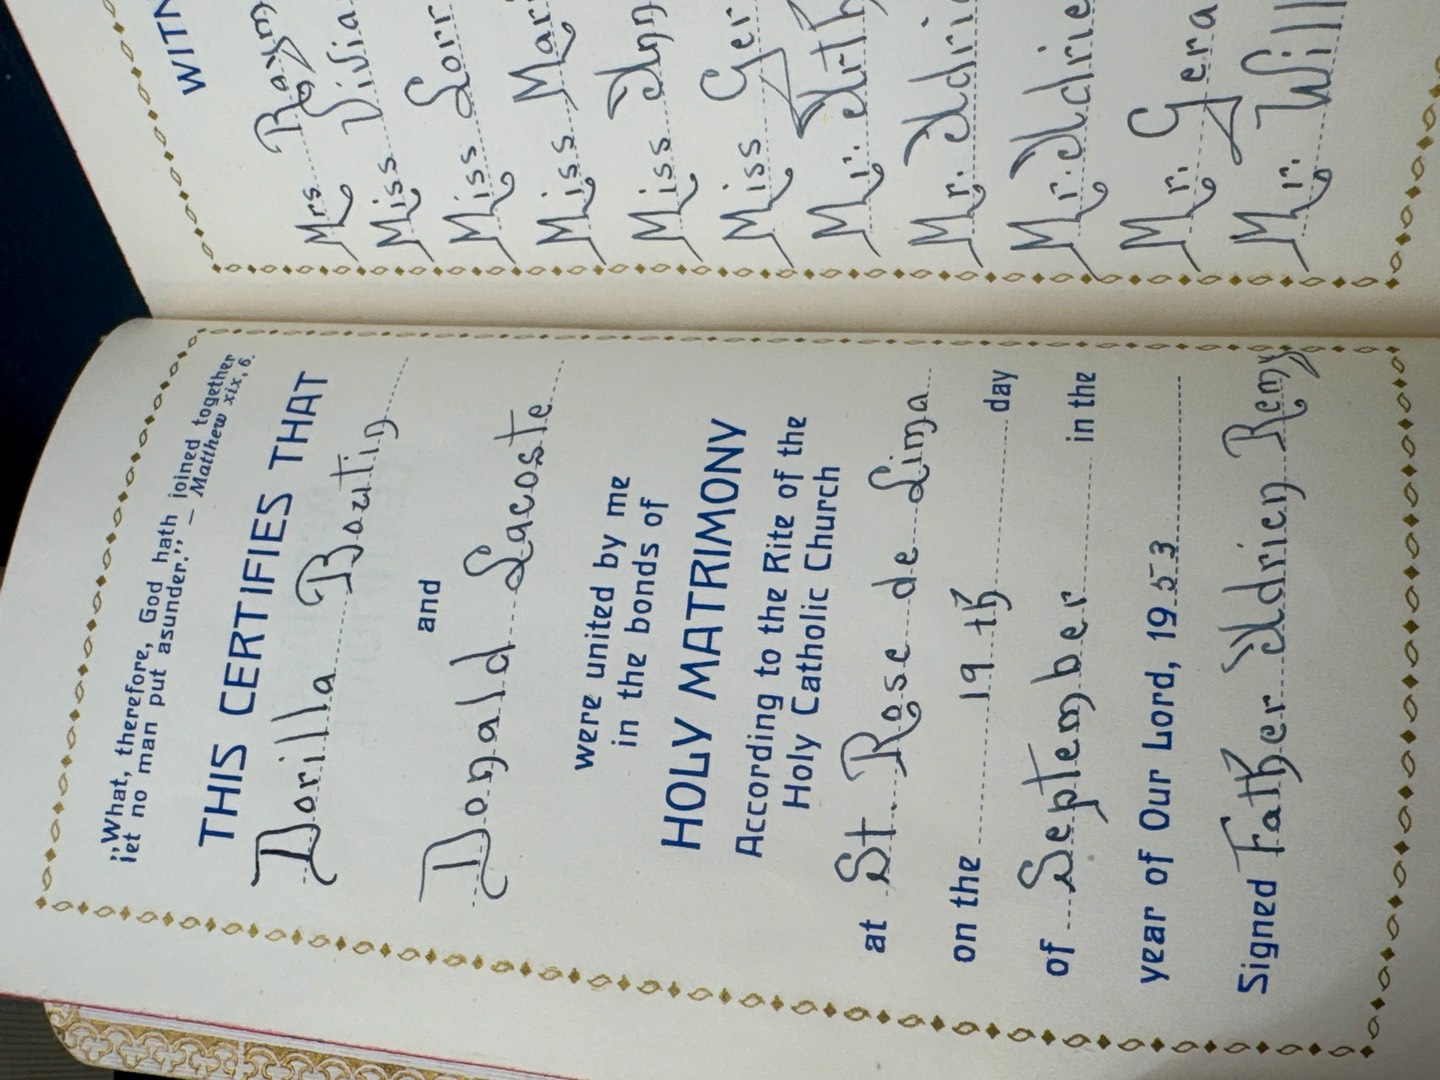 „What, therefore, God hath joined together
let no man put asunder.” — Matthew xix, 6.
THIS CERTIFIES THAT
Dorilla Boutin
and
Donald Lacoste
were united by me
in the bonds of
HOLY MATRIMONY
According to the Rite of the
Holy Catholic Church
at St. Rose de Lima
on the 19 th day
of September in the
year of Our Lord, 1953
Signed Father Adrien Remy
WITN
Mrs. Raym
Miss Vivia
Miss Lorr
Miss Mar
Miss Ann
Miss Ger
Mr. Arth
Mr. Adri
Mr. Adrie
Mr. Gera
Mr. Will